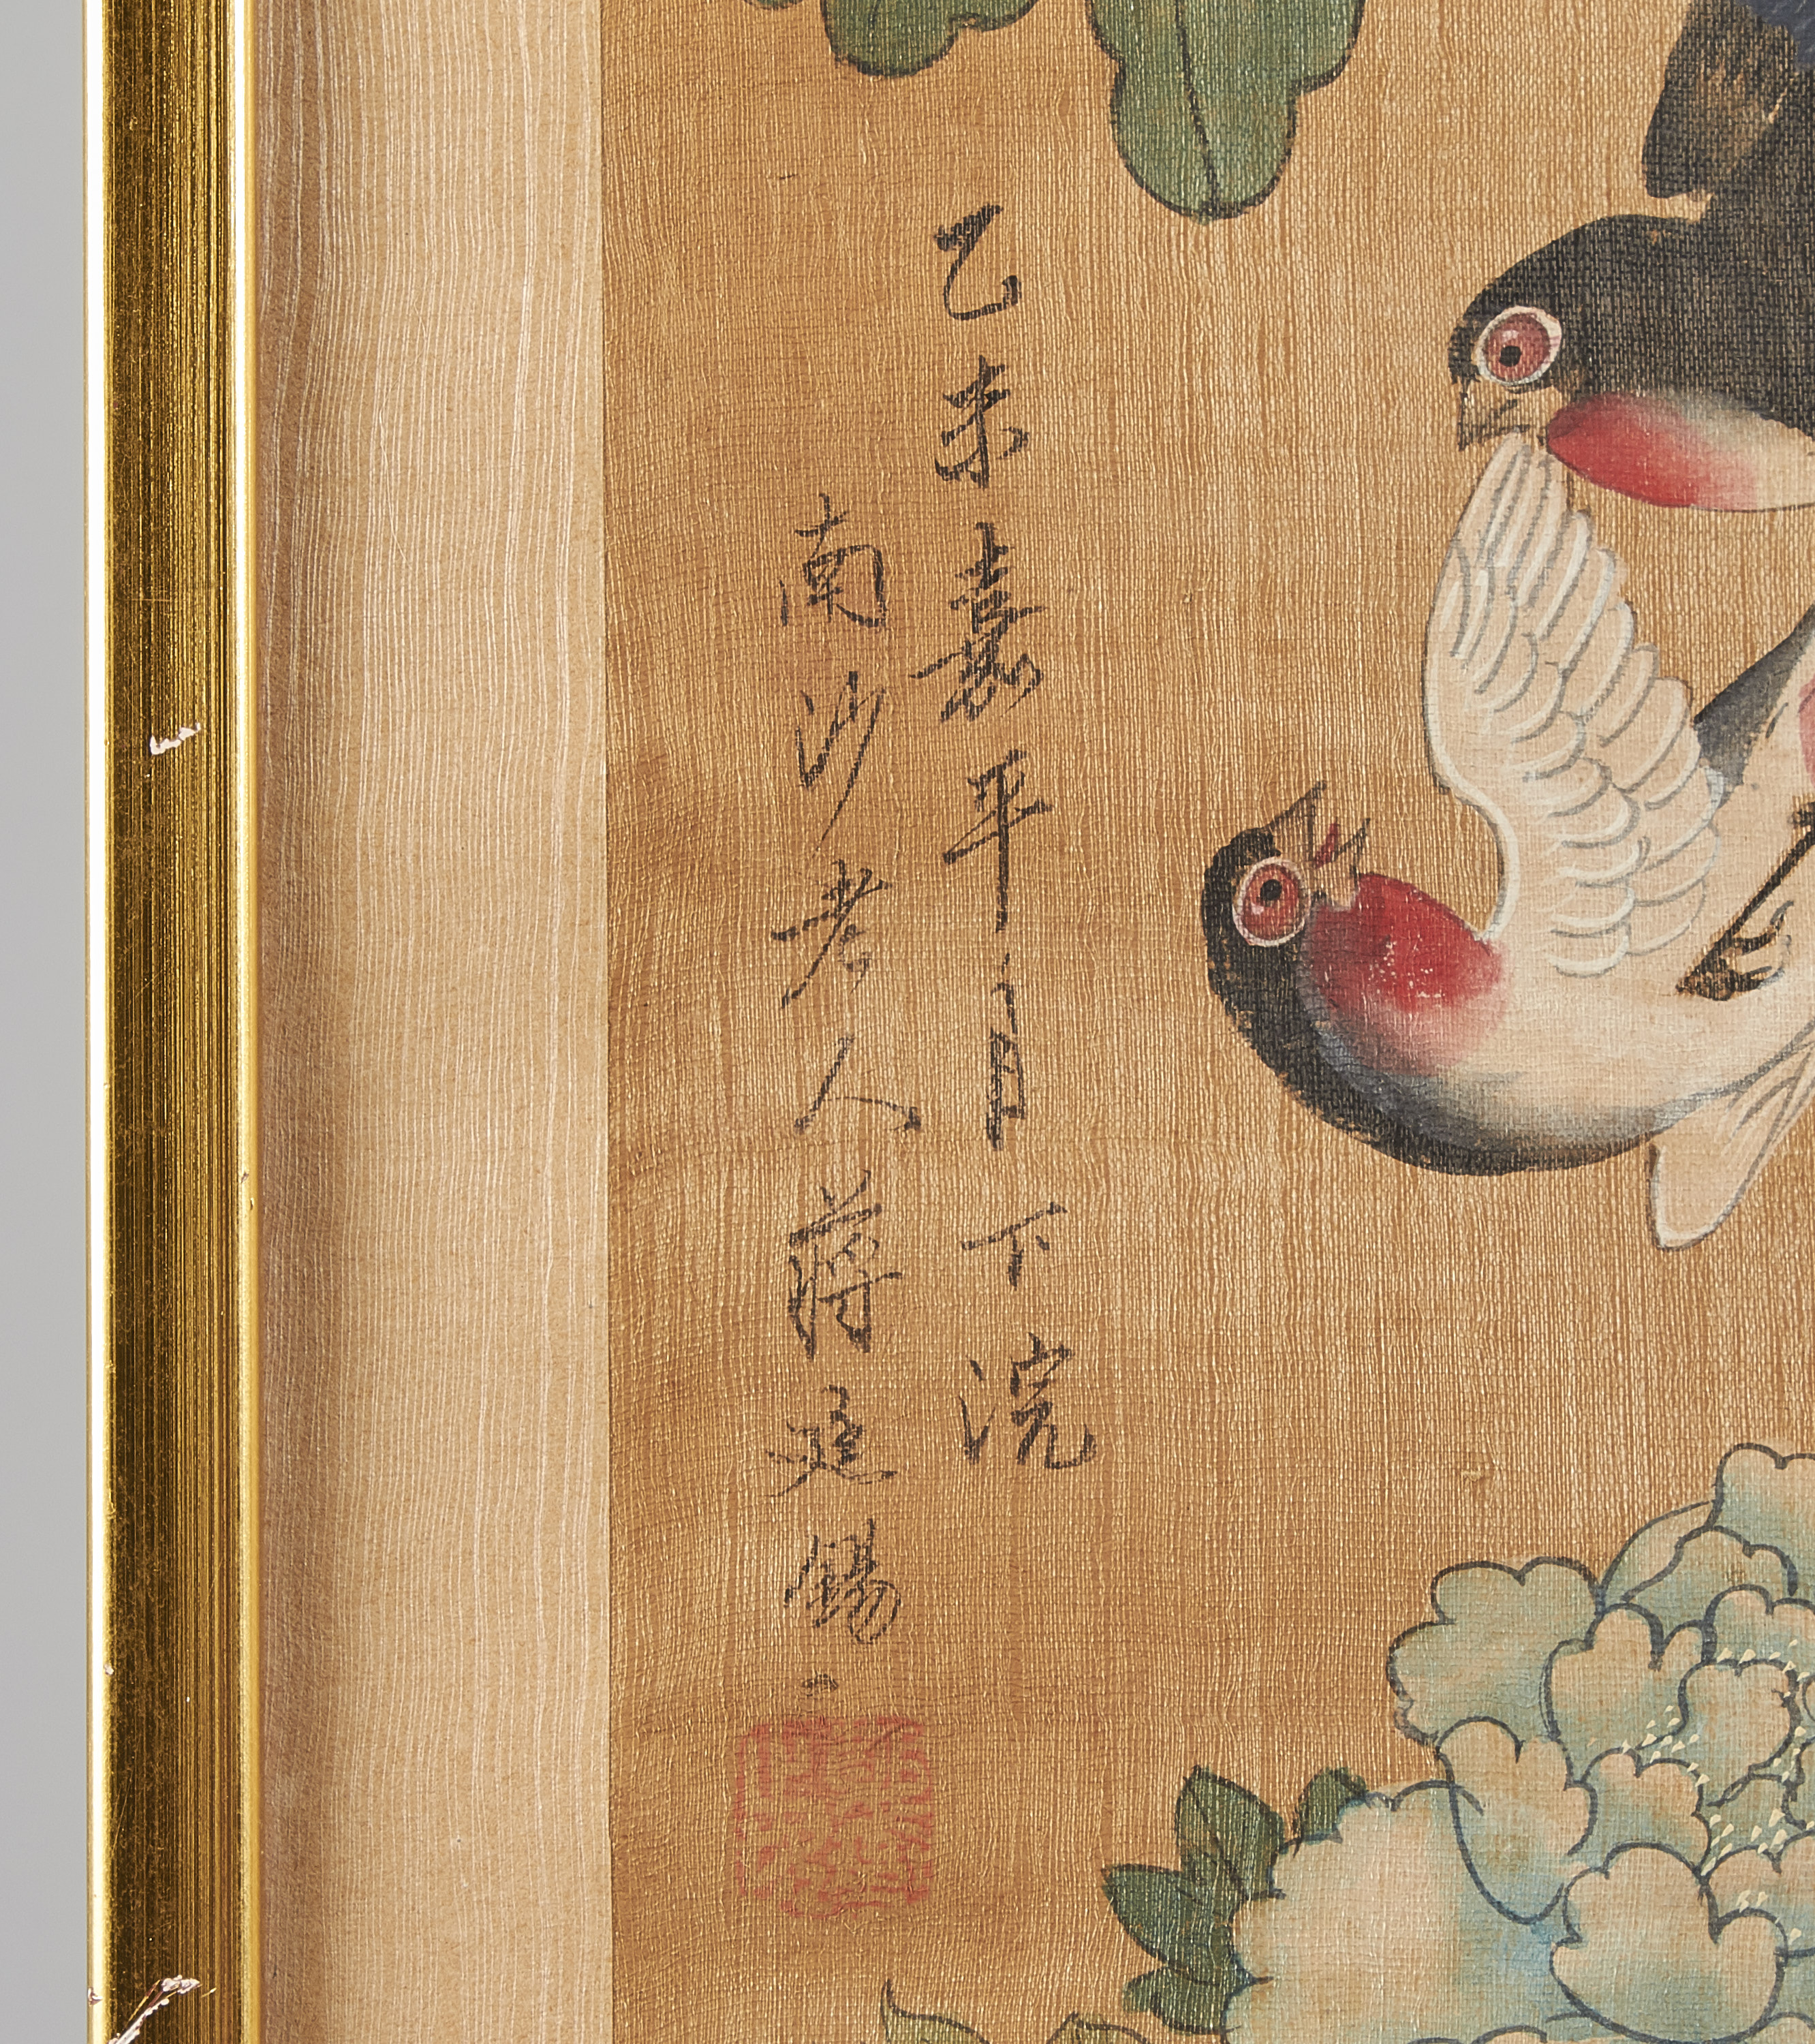 乙未嘉平月下浣
南沙老人蒋廷錫